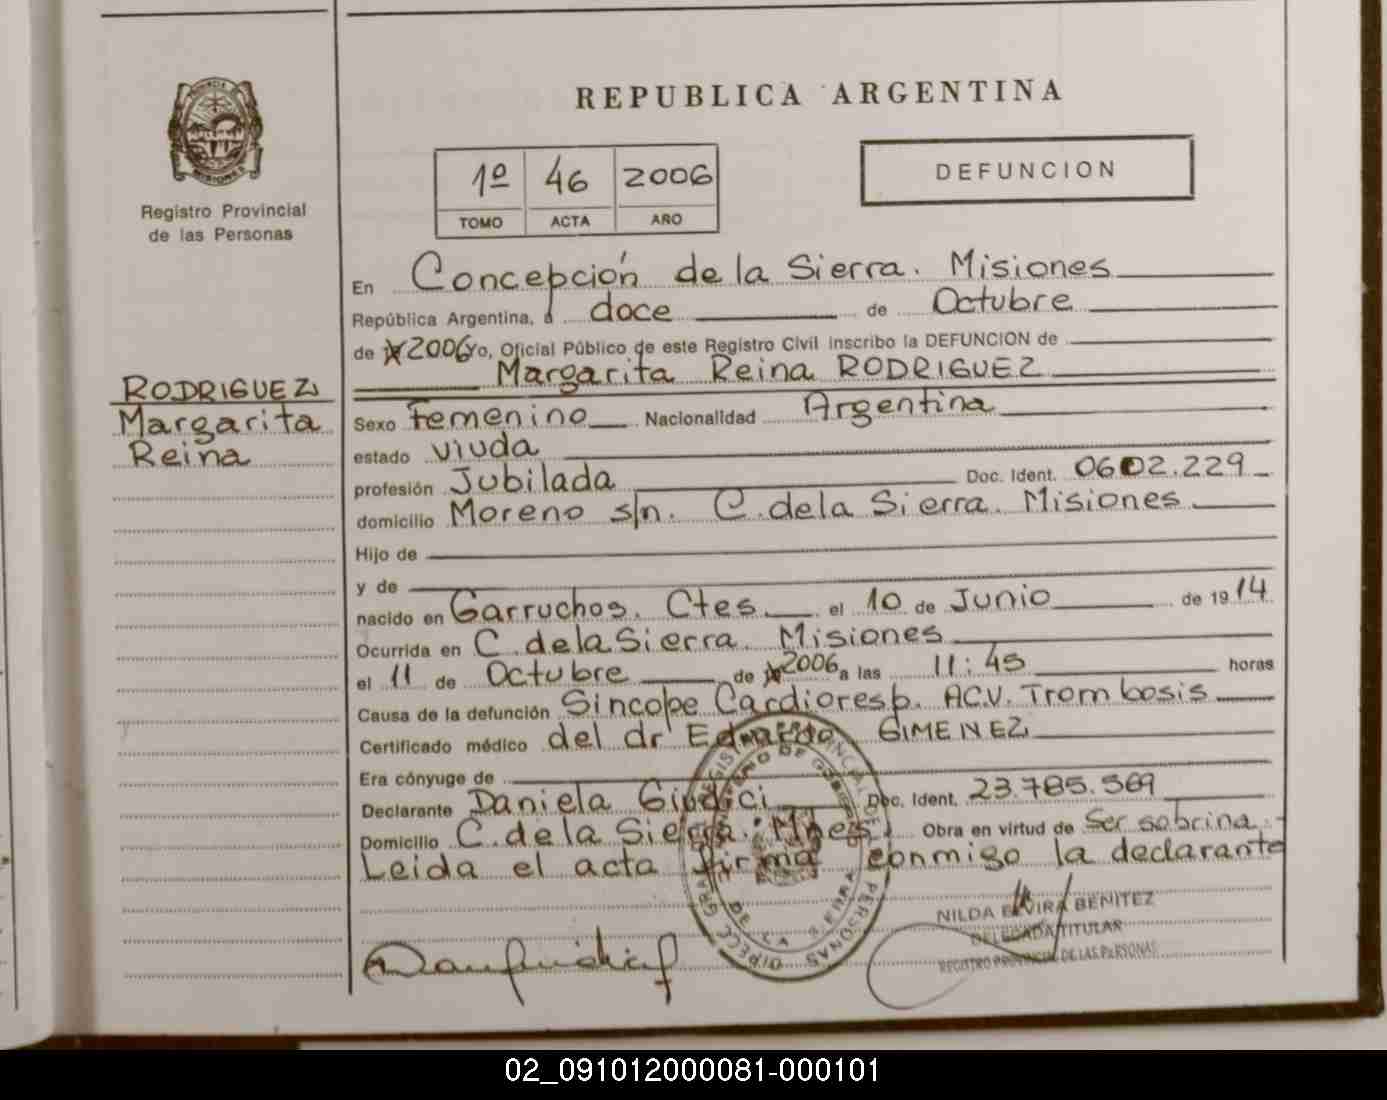 REPUBLICA ARGENTINA
PROVINCIA DE
MISIONES
Registro Provincial
de las Personas
1º 46 2006
TOMO ACTA AÑO
DEFUNCION
En Concepción de la Sierra. Misiones
República Argentina, a doce de Octubre
de 2006 Yo, Oficial Público de este Registro Civil inscribo la DEFUNCION de
Margarita Reina RODRIGUEZ
RODRIGUEZ
Margarita
Reina
Sexo Femenino Nacionalidad Argentina
estado viuda
profesión Jubilada Doc. Ident. 0602.229
domicilio Moreno s/n. C. de la Sierra. Misiones
Hijo de
y de
nacido en Garruchos. Ctes el 10 de Junio de 1914
Ocurrida en C. de la Sierra. Misiones
el 11 de Octubre de 2006 a las 11:45 horas
Causa de la defunción Sincope Cardioresp. AC.V. Trombosis
Certificado médico del dr Eduardo GIMENEZ
Era cónyuge de
Declarante Daniela Giudici Doc. Ident. 23.785.569
Domicilio C. de la Sierra. Mnes. Obra en virtud de Ser sobrina.
Leida el acta firma conmigo la declarante
NILDA ELVIRA BENITEZ
DELEGADA TITULAR
REGISTRO PROVINCIAL DE LAS PERSONAS
02_091012000081-000101